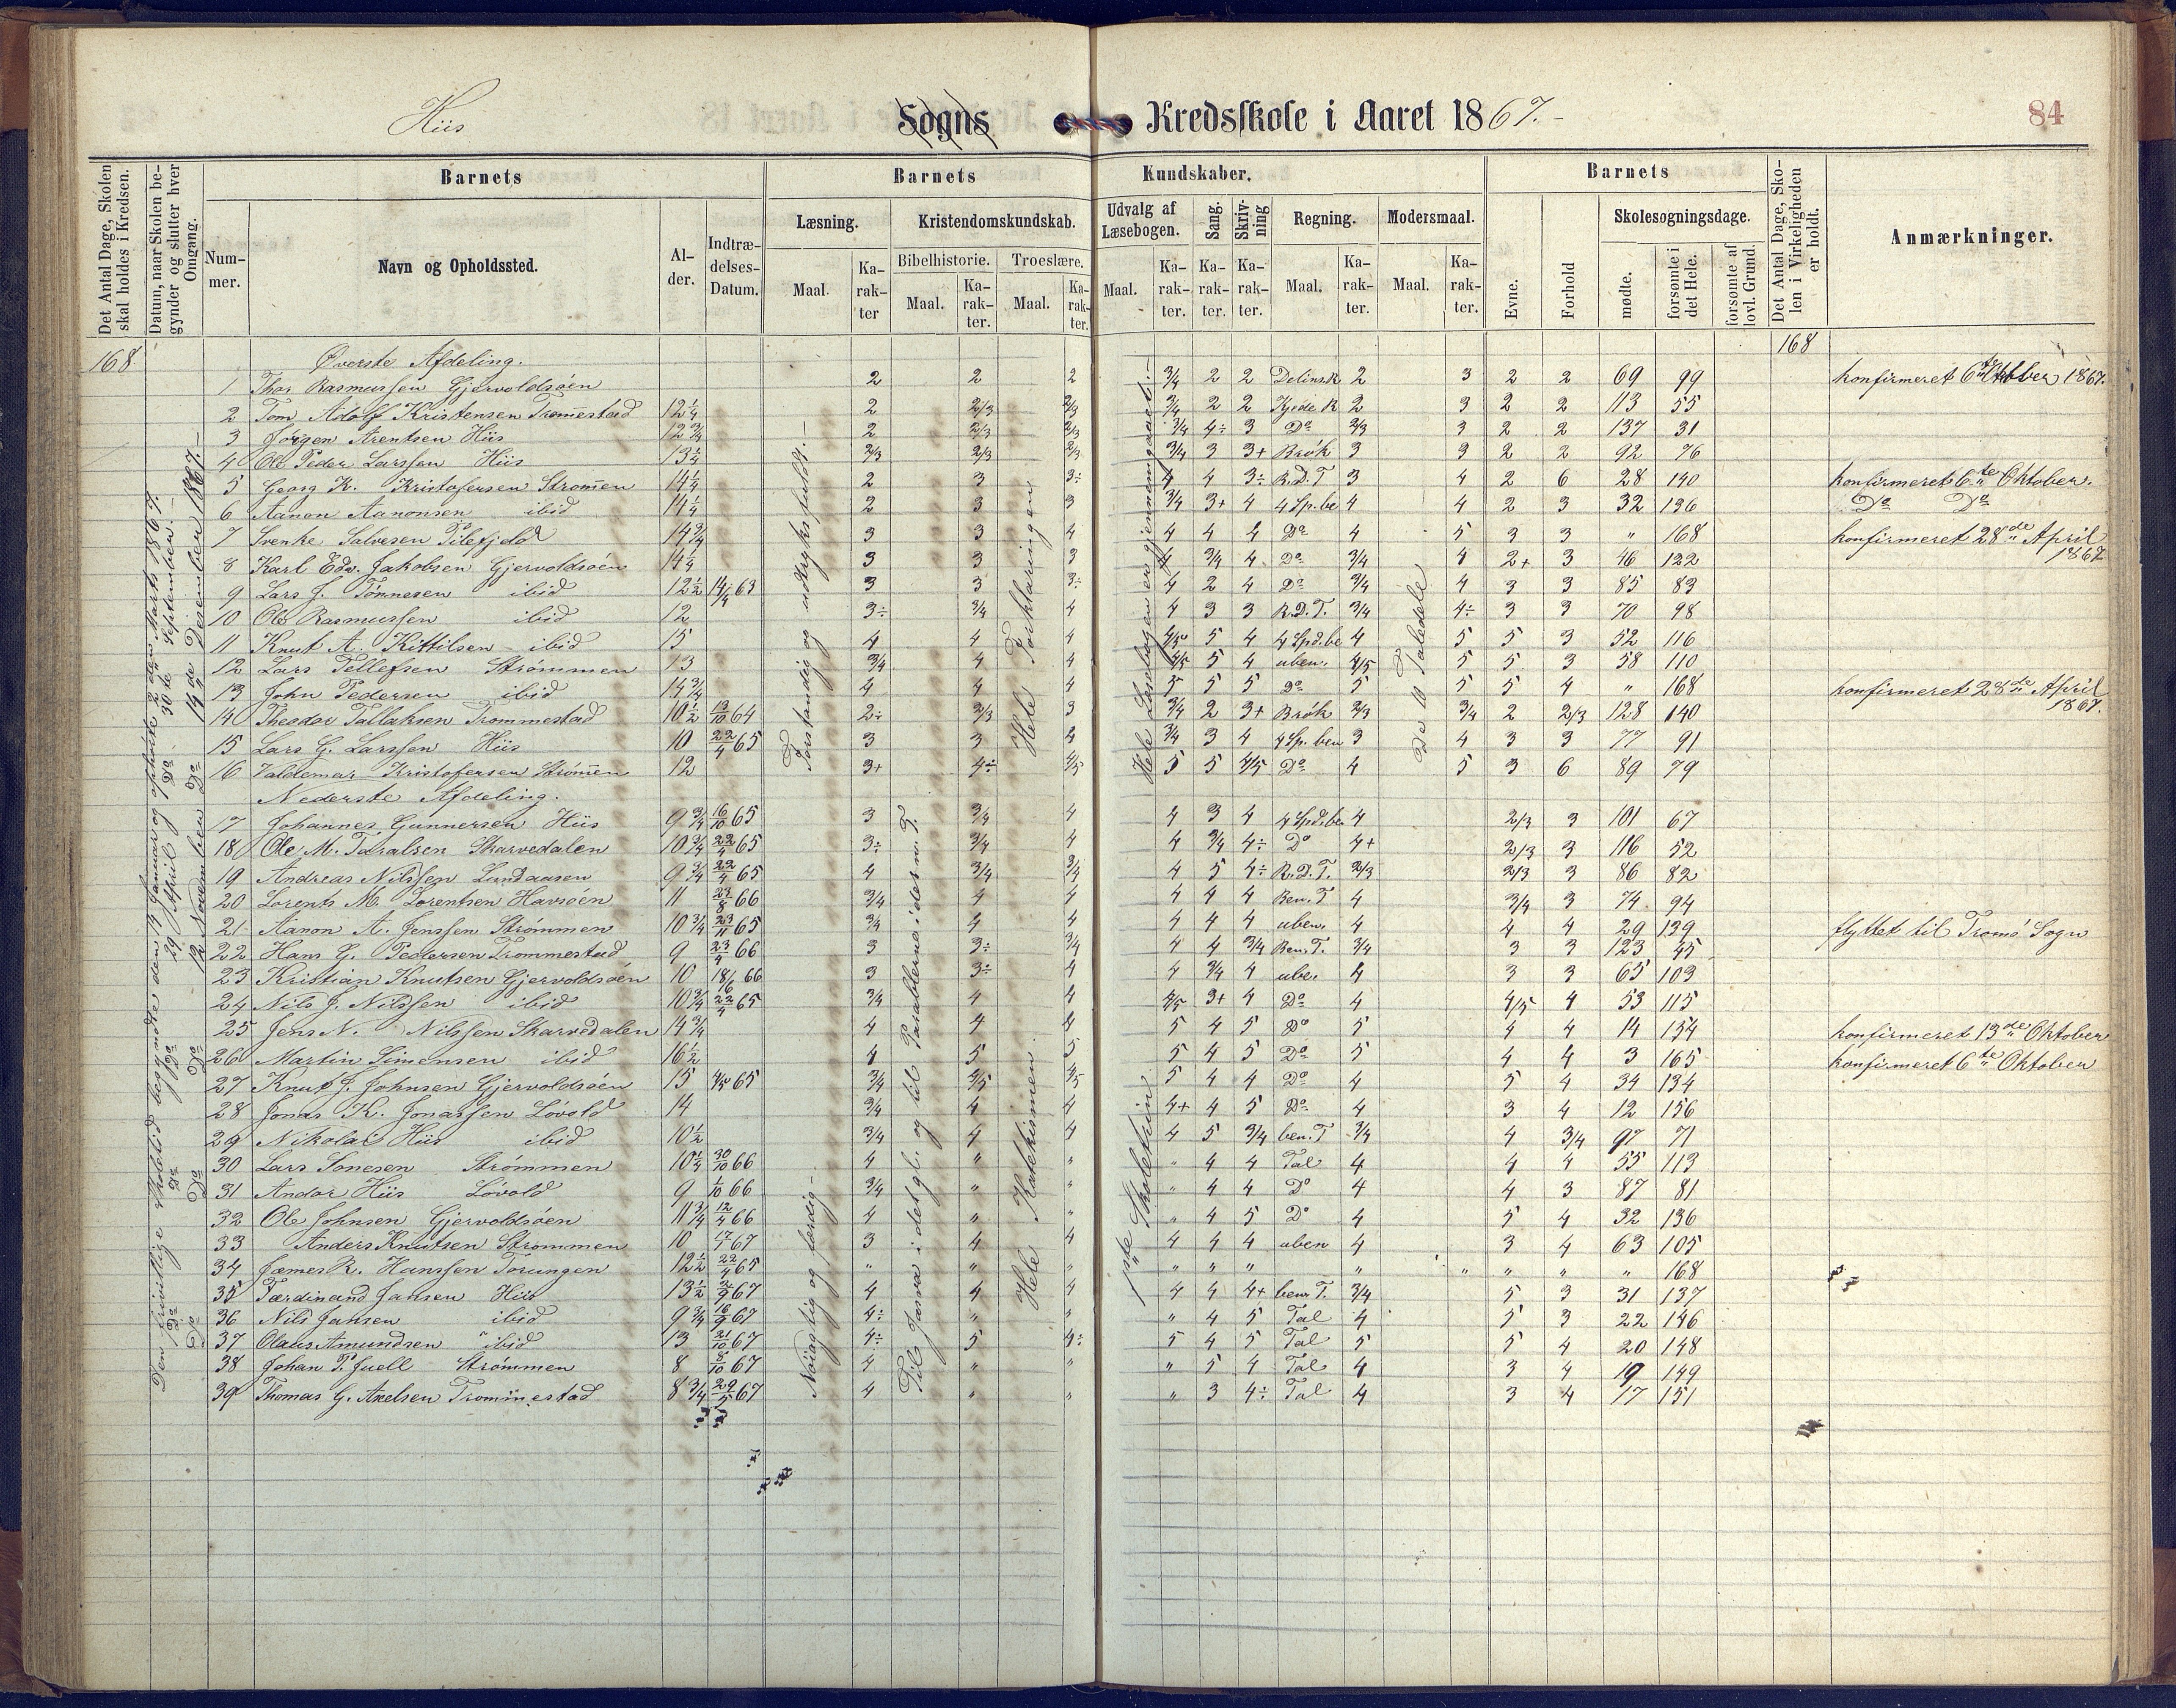 Hiis Sogns Kredsskole i Aaret 1867.- 84
Det Antal Dage, Skolen skal holdes i Kredsen.
Datum, naar Skolen begynder og slutter hver Omgang.
Barnets
Nummer.
Navn og Opholdssted.
Alder.
Indtrædelses-Datum.
Barnets Kundskaber.
Læsning.
Maal.
Karakter
Kristendomskundskab.
Bibelhistorie.
Maal.
Karakter.
Troeslære.
Maal.
Karakter.
Udvalg af Læsebogen.
Maal.
Karakter.
Sang.
Karakter.
Skrivning
Karakter.
Regning.
Maal.
Karakter.
Modersmaal.
Maal.
Karakter.
Barnets
Evne.
Forhold
Skolesøgningsdage.
mødte.
forsømte i det Hele.
forsømte af lovl. Grund.
Det Antal Dage, Skolen i Virkeligheden er holdt.
Anmærkninger.
168 168
Øverste Afdeling.
1 Thos Rasmussen Gjervoldsøen 2 2 2 3/4 2 2 Delinsk 2 3 2 2 69 99 konfirmeret 6te Oktober 1867.
2 Tom Adolf Kristensen Tromestad 12 1/4 2 2/3 2/3 3/4 2 2 Kjede R 2 3 2 2 113 55
3 Jörgen Arentsen Hiis 12 3/4 2 2/3 2/3 3/4 4÷ 3 Do 2/3 3 2 2 137 31
4 Ole Peder Larssen Hiis 13 1/4 2/3 2/3 2/3 3/4 3 3+ Brök 3 3 2 2 92 76
5 Georg K. Kristofersen Strömen 14 1/4 2 3 3÷ 4 4 3÷ R.D.T 3 4 2 6 28 140 konfirmeret 6te Oktober.
6 Aanon Aanonsen ibid 14 1/4 2 3 3 3/4 3+ 4 4 Sp.be 4 4 2 3 32 136 Do Do
7 Svenke Salvesen Pilefjeld 14 3/4 3 3 4 4 4 4 Do 4 5 3 3 " 168 konfirmeret 28de April 1867
8 Karl Edv. Jakobsen Gjervoldsöen 14 1/4 3 3 3 4 3/4 4 Do 3/4 4 2+ 3 46 122
9 Lars J. Tönnesen ibid 12 1/2 14/4 63 3 3 3÷ 4 2 4 Do 3/4 4 3 3 85 83
10 Ole Rasmussen ibid 12 3÷ 3/4 4 4 3 3 R.D.T. 3/4 4÷ 3 3 70 98
11 Knut A. Kittilsen ibid 15 4 4 4 4/5 5 4 4 Spd.be 4 5 5 3 52 116
12 Lars Tellefsen Strömmen 13 3/4 4 4 4/5 5 4 uben. 4/5 5 5 3 58 110
13 John Pedersen ibid 14 3/4 4 4 4 5 5 5 Do 5 5 5 4 " 168 konfirmeret 28de April 1867.
14 Theodor Tallaksen Trommestad 10 1/2 13/10 64 2÷ 2/3 3 3/4 2 3+ Brök 2/3 3/4 2 2/3 128 140
15 Lars G. Larssen Hiis 10 22/4 65 3 3 4 3/4 3 4 4 Sp. ben 3 4 3 3 77 91
16 Valdemar Kristofersen Strömen 12 3+ 4÷ 4/5 5 5 4/5 Do 4 5 3 6 89 79
Nederste Afdeling.
17 Johannes Gunnersen Hiis 9 3/4 16/10 65 3 3/4 4 4 3 4 4 Spd.be 4 2/3 3 101 67
18 Ole M. Taralsen Skarvedalen 10 3/4 22/4 65 3÷ 3/4 4 4 3/4 4÷ Do 4+ 2/3 3 116 52
19 Andreas Nilssen Lundaasen 9 3/4 22/4 65 4 3/4 3/4 4 5 4÷ R.D.T. 2/3 2/3 3 86 82
20 Lorents M. Lorentsen Havsöen 11 23/8 66 3/4 4 4 4 4 4 Ben. T 4 3/4 3 74 94
21 Aanon A. Jenssen Strömmen 10 3/4 23/11 65 3/4 4 4 4 4 4 uben. 4 4 4 29 139 flyttet til Tromö Sogn
22 Hans G. Pedersen Trommestad 9 23/4 66 3 3÷ 3/4 4 4 3/4 Ben. T. 3/4 3 3 123 45
23 Kristian Knutsen Gjervoldsöen 10 18/6 66 3 3÷ 4 4 3/4 4 ube. 4 3 3 65 103
24 Nils J. Nilssen ibid 10 3/4 22/4 65 3/4 4 4 4/5 3+ 4 Do 4 4/5 4 53 115
25 Jens N. Nilssen Skarvedalen 14 3/4 4 4 4 5 4 5 Do 5 4 4 14 154 konfirmeret 13de Oktober
26 Martin Simensen ibid 16 1/2 4 5 5 5 4 5 Do 5 4 4 3 165 konfirmeret 6te Oktober
27 Knut J. Johnsen Gjervoldsöen 15 4/5 65 3/4 4/5 4/5 5 4 4 Do 4 5 4 34 134
28 Jonas K. Jonassen Lövold 14 3/4 4 4 4+ 4 5 Do 4 3 4 12 156
29 Nikolai Hiis ibid 10 1/2 3/4 4 4 4 5 3/4 ben. T 3/4 4 3/4 97 71
30 Lars Sonesen Strömmen 10 1/4 30/10 66 4 " " " 4 4 Tal 4 4 4 55 113
31 Andor Hiis Lövold 9 1/10 66 3/4 " " " 4 4 Do 4 4 3 87 81
32 Ole Johnsen Gjervoldsöen 11 3/4 12/4 66 4 " " " 4 5 Do 4 5 4 32 136
33 Anders Knutsen Strommen 10 17/1 67 3 4 4 4 4 4 uben 4 3 4 63 105
34 Jæmes R. Hanssen Torungen 12 1/2 22/4 65 " " " " " " " " " " " 168
35 Ferdinand Jansen Hiis 13 1/2 3/9 67 4 4 4 4 4 4+ ben. T. 3/4 5 3 31 137
36 Nils Jansen ibid 9 3/4 16/9 67 4÷ " " " 4 5 Tal 4 5 3 22 146
37 Olaus Amundsen ibid 13 21/10 67 4÷ 5 4÷ 5 4 5 Tal 5 5 4 20 148
38 Johan P. Juell Strömmen 8 8/10 67 4 " " " 5 4 Tal 4 3 4 19 149
39 Thomas G. Axelsen Trommestad 8 3/4 29/5 67 4 " " " 3 4÷ Tal 4 3 4 17 151
Den frivillige Skoletid begyndte den 14 Januar og ophørte 2den Marts 1867.
Do Do Do 29 April Do 30te September.-
Do Do Do 12 November Do 14de Desember 1867.-
Forstandig og udtryksfuldt.-
Nöiagtig og færdig-
Til Josva i det gl. og til Parablerne i det n. T.
Hele Forklaringen
Hele Katekismen.
Hele Læsebogen er gjennemgaaet.-
1ste Skoletrin
De 10 Taledele